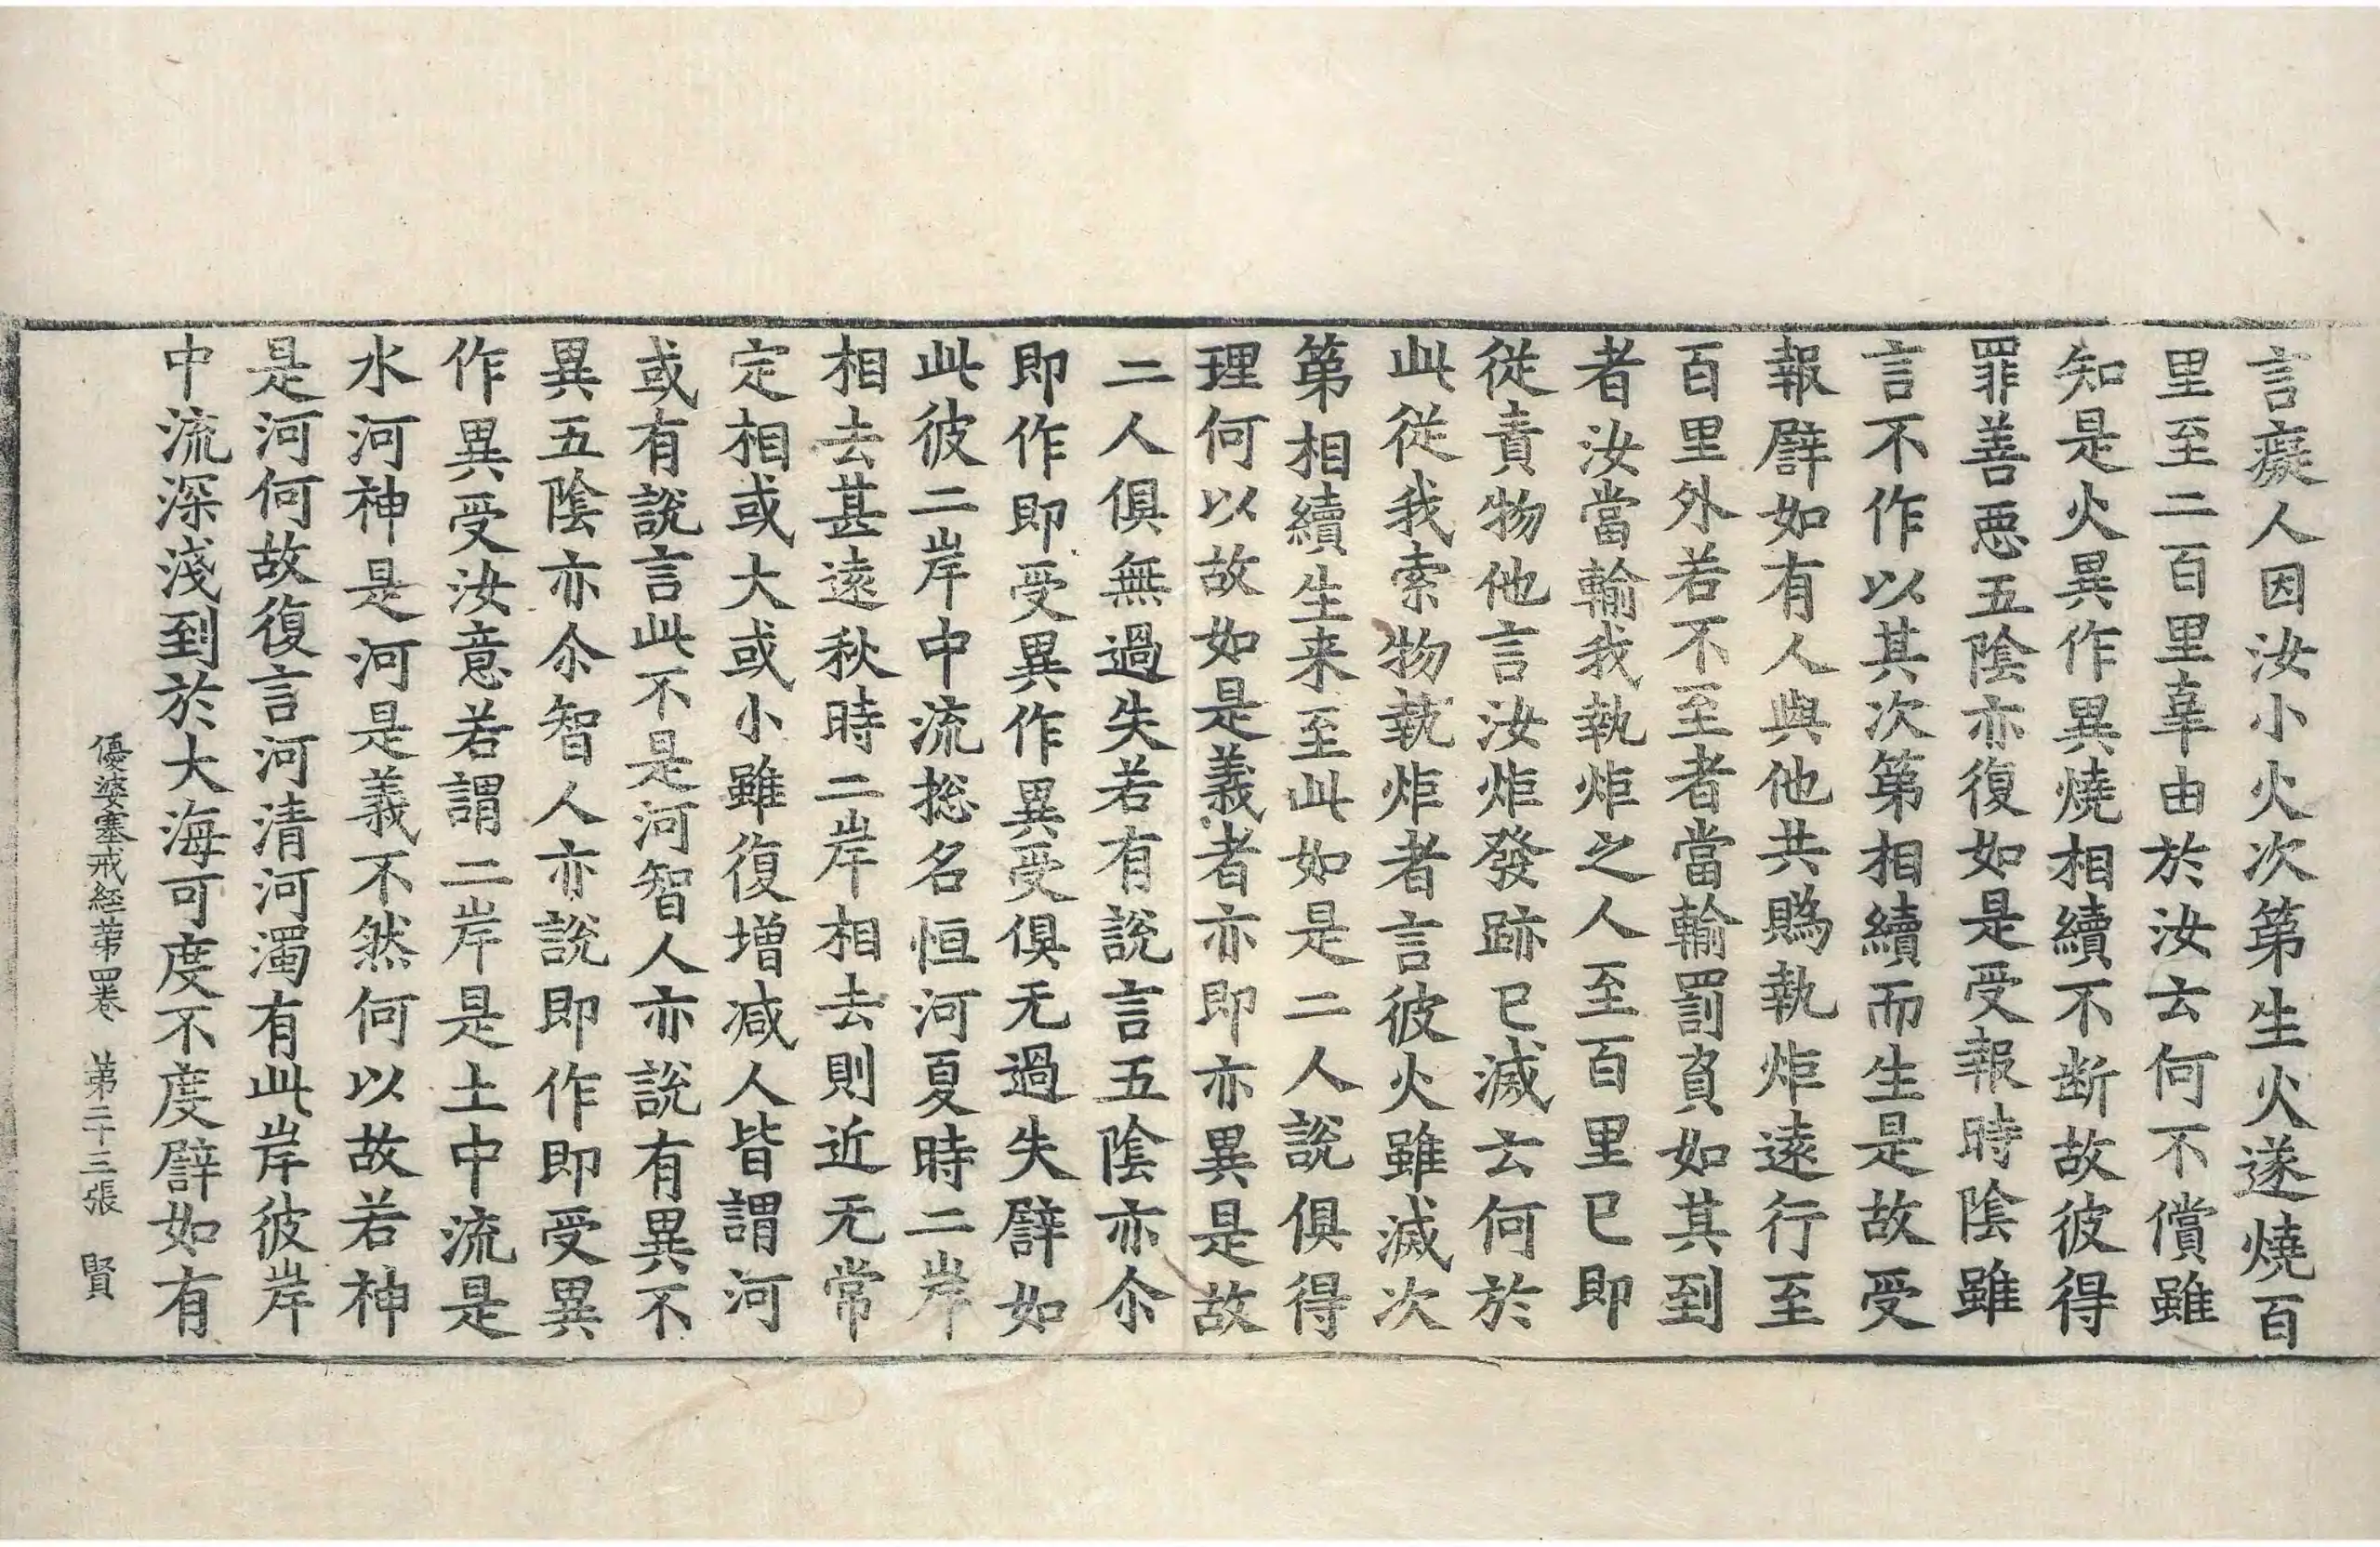 言癡人因汝小火次第生火遂燒百
里至二百里辜由於汝云何不償雖
知是火異作異燒相續不断故彼得
罪善惡五陰亦復如是受報時陰雖
言不作以其次第相續而生是故受
報譬如有人與他共賭執炬遠行至
百里外若不至者當輸罰負如其到
者汝當輸我執炬之人至百里已即
從責物他言汝炬發跡已滅云何於
此從我索物執炬者言彼火雖滅次
第相續生来至此如是二人說俱得
理何以故如是義者亦即亦異是故
二人俱無過失若有說言五陰亦尒
即作即受異作異受俱无過失譬如
此彼二岸中流揔名恒河夏時二岸
相去甚遠秋時二岸相去則近无常
定相或大或小雖復增減人皆謂河
或有說言此不是河智人亦說有異不
異五陰亦尒智人亦說即作即受異
作異受汝意若謂二岸是土中流是
水河神是河是義不然何以故若神
是河何故復言河清河濁有此岸彼岸
中流深淺到於大海可度不度譬如有
優婆塞戒經第四卷 第二十三張 賢